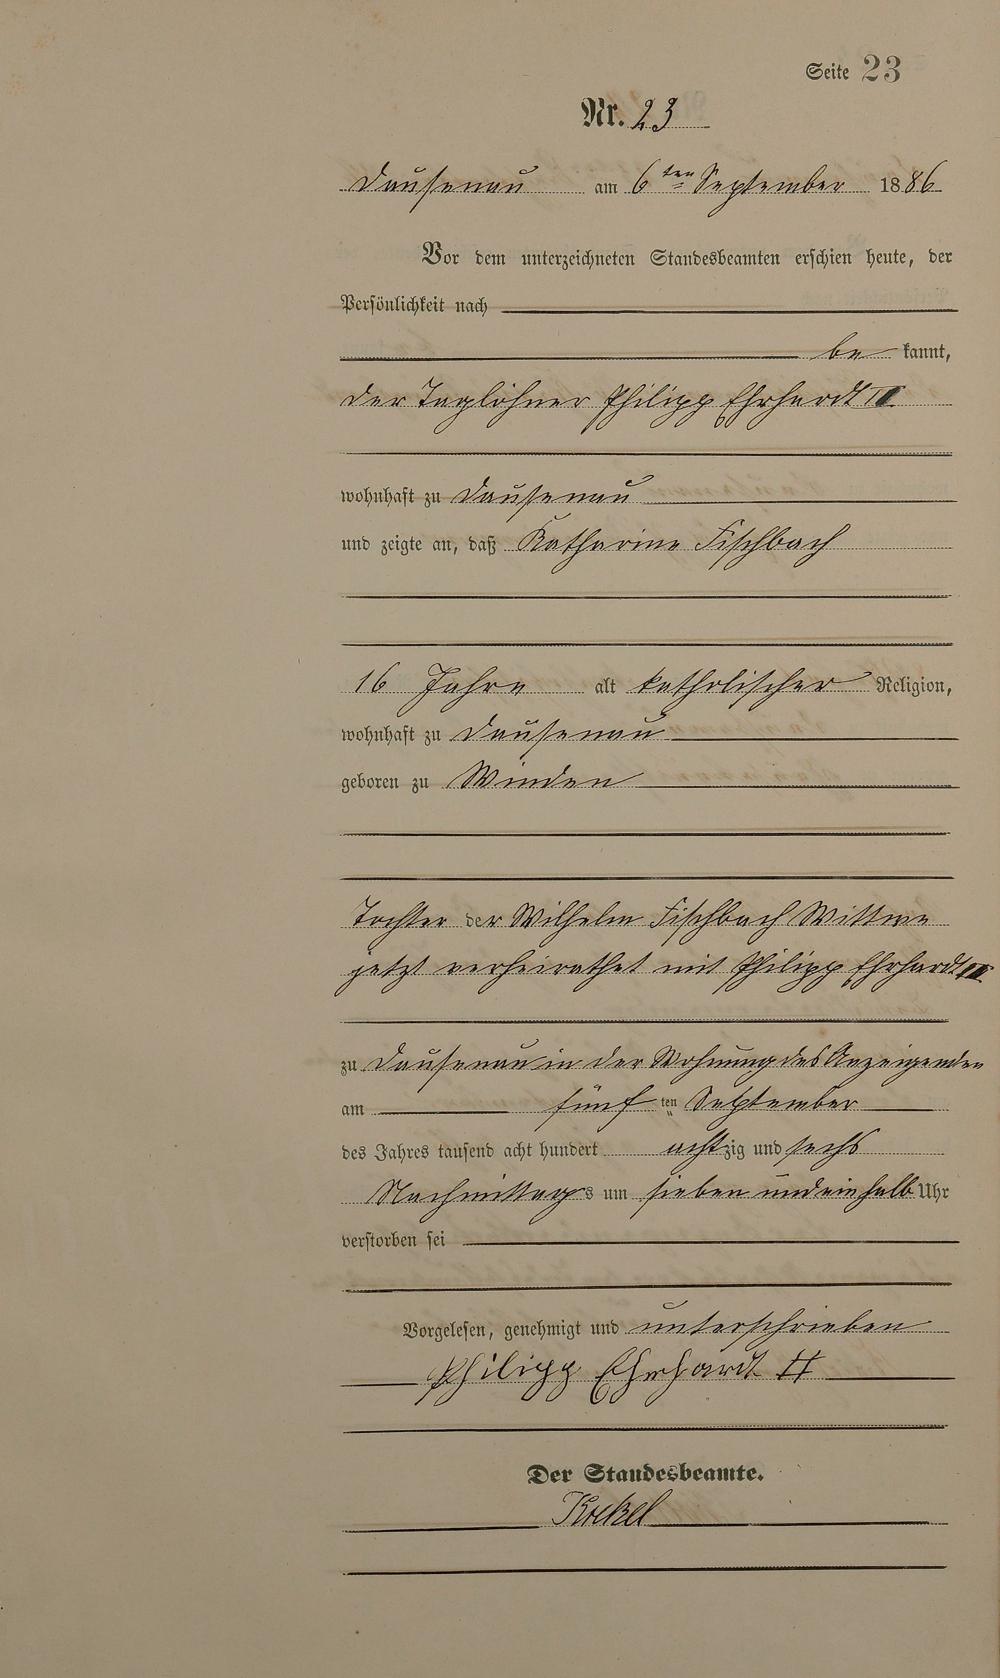 Seite 23
Nr. 23
Dausenau am 6ten September 1886
Vor dem unterzeichneten Standesbeamten erschien heute, der
Persönlichkeit nach
be kannt,
der Taglöhner Philipp Ehrhardt II
wohnhaft zu Dausenau
und zeigte an, daß Katharine Fischbach
16 Jahre alt katholischer Religion,
wohnhaft zu Dausenau
geboren zu Winden
Tochter der Wilhelm Fischbach Wittwe
jetzt verheirathet mit Philipp Ehrhardt II
zu Dausenau in der Wohnung des Anzeigenden
am fünf ten September
des Jahres tausend acht hundert achtzig und sechs
Nachmittags um sieben und ein halb Uhr
verstorben sei
Vorgelesen, genehmigt und unterschrieben
Philipp Ehrhardt II
Der Standesbeamte.